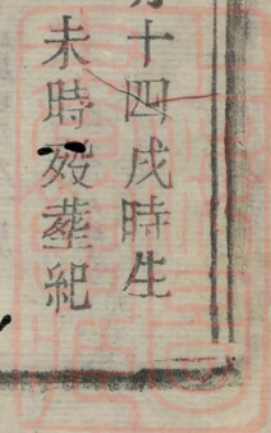 十四戌時生
未時歿葬紀